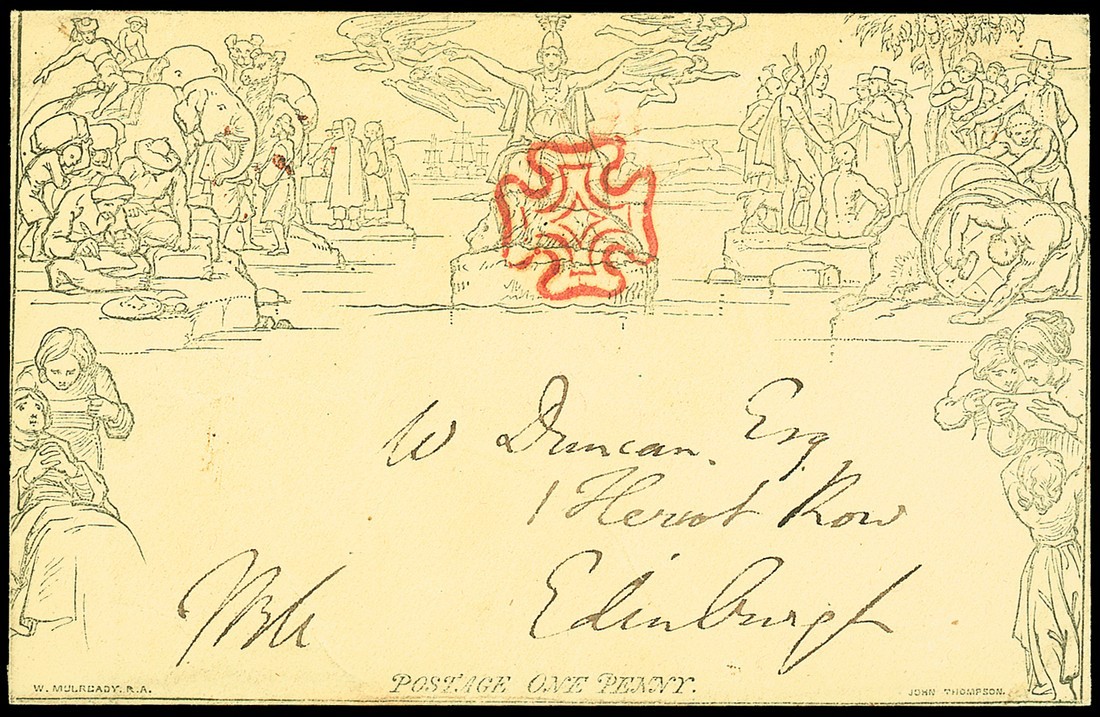 W Duncan. Esq
1 Heriot Row
Edinburgh
POSTAGE ONE PENNY.
W. MULREADY. R.A.
JOHN THOMPSON.